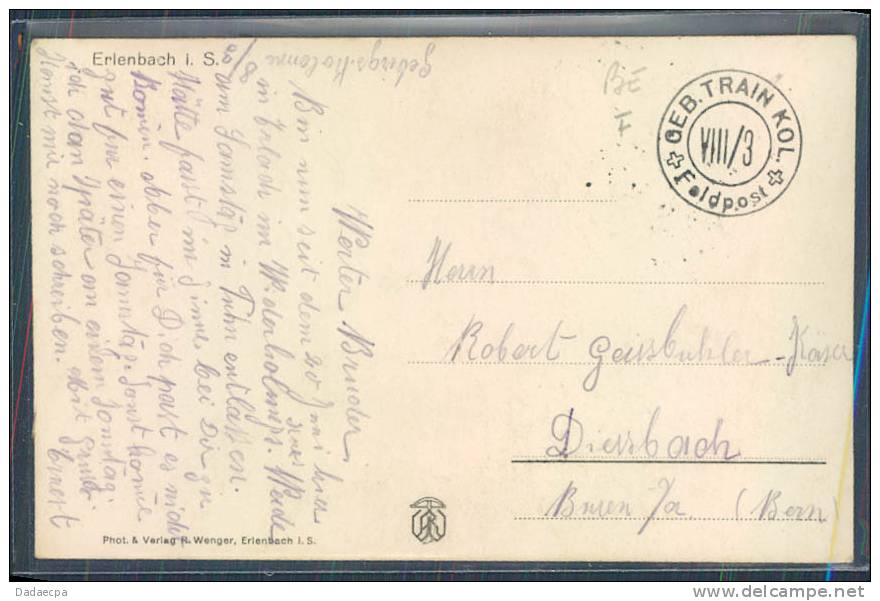 Erlenbach i. S.
Gebirgs-Kolonne
8/
Werter Bruder,
Bin nun seit dem 20 Juni hier
in im Wiederholungs.
am Samstag in Thun entlassen.
Hätte fast im Sinne bei Dir zu
Komen. Aber für Dich past es nicht
gut für einen Samstag. Sonst köme
ich dan später an einem Sonntag.
Kanst mir noch schreiben. Mit Gruss
Ernest
BE
GEB. TRAIN KOL.
VIII/3
Feldpost
Herrn
Robert Geissbuhler-Käser
Diessbach
Büren /a. (Bern)
Phot. & Verlag R. Wenger, Erlenbach i. S.
Dadaecpa
delcampe.net